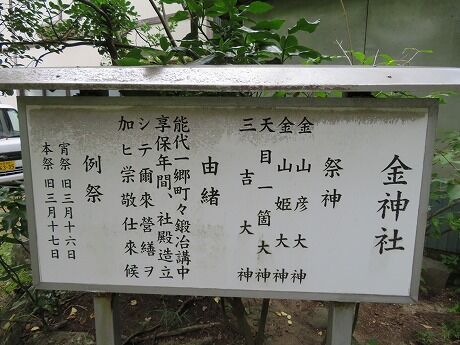 金神社
祭神
金山彦大神
金山姫大神
天目一箇大神
三吉大神
由緒
能代一郷町々鍛冶講中
享保年間、社殿造立
シテ爾來營繕ヲ
加ヒ崇敬仕来候
例祭
宵祭 旧三月十六日
本祭 旧三月十七日